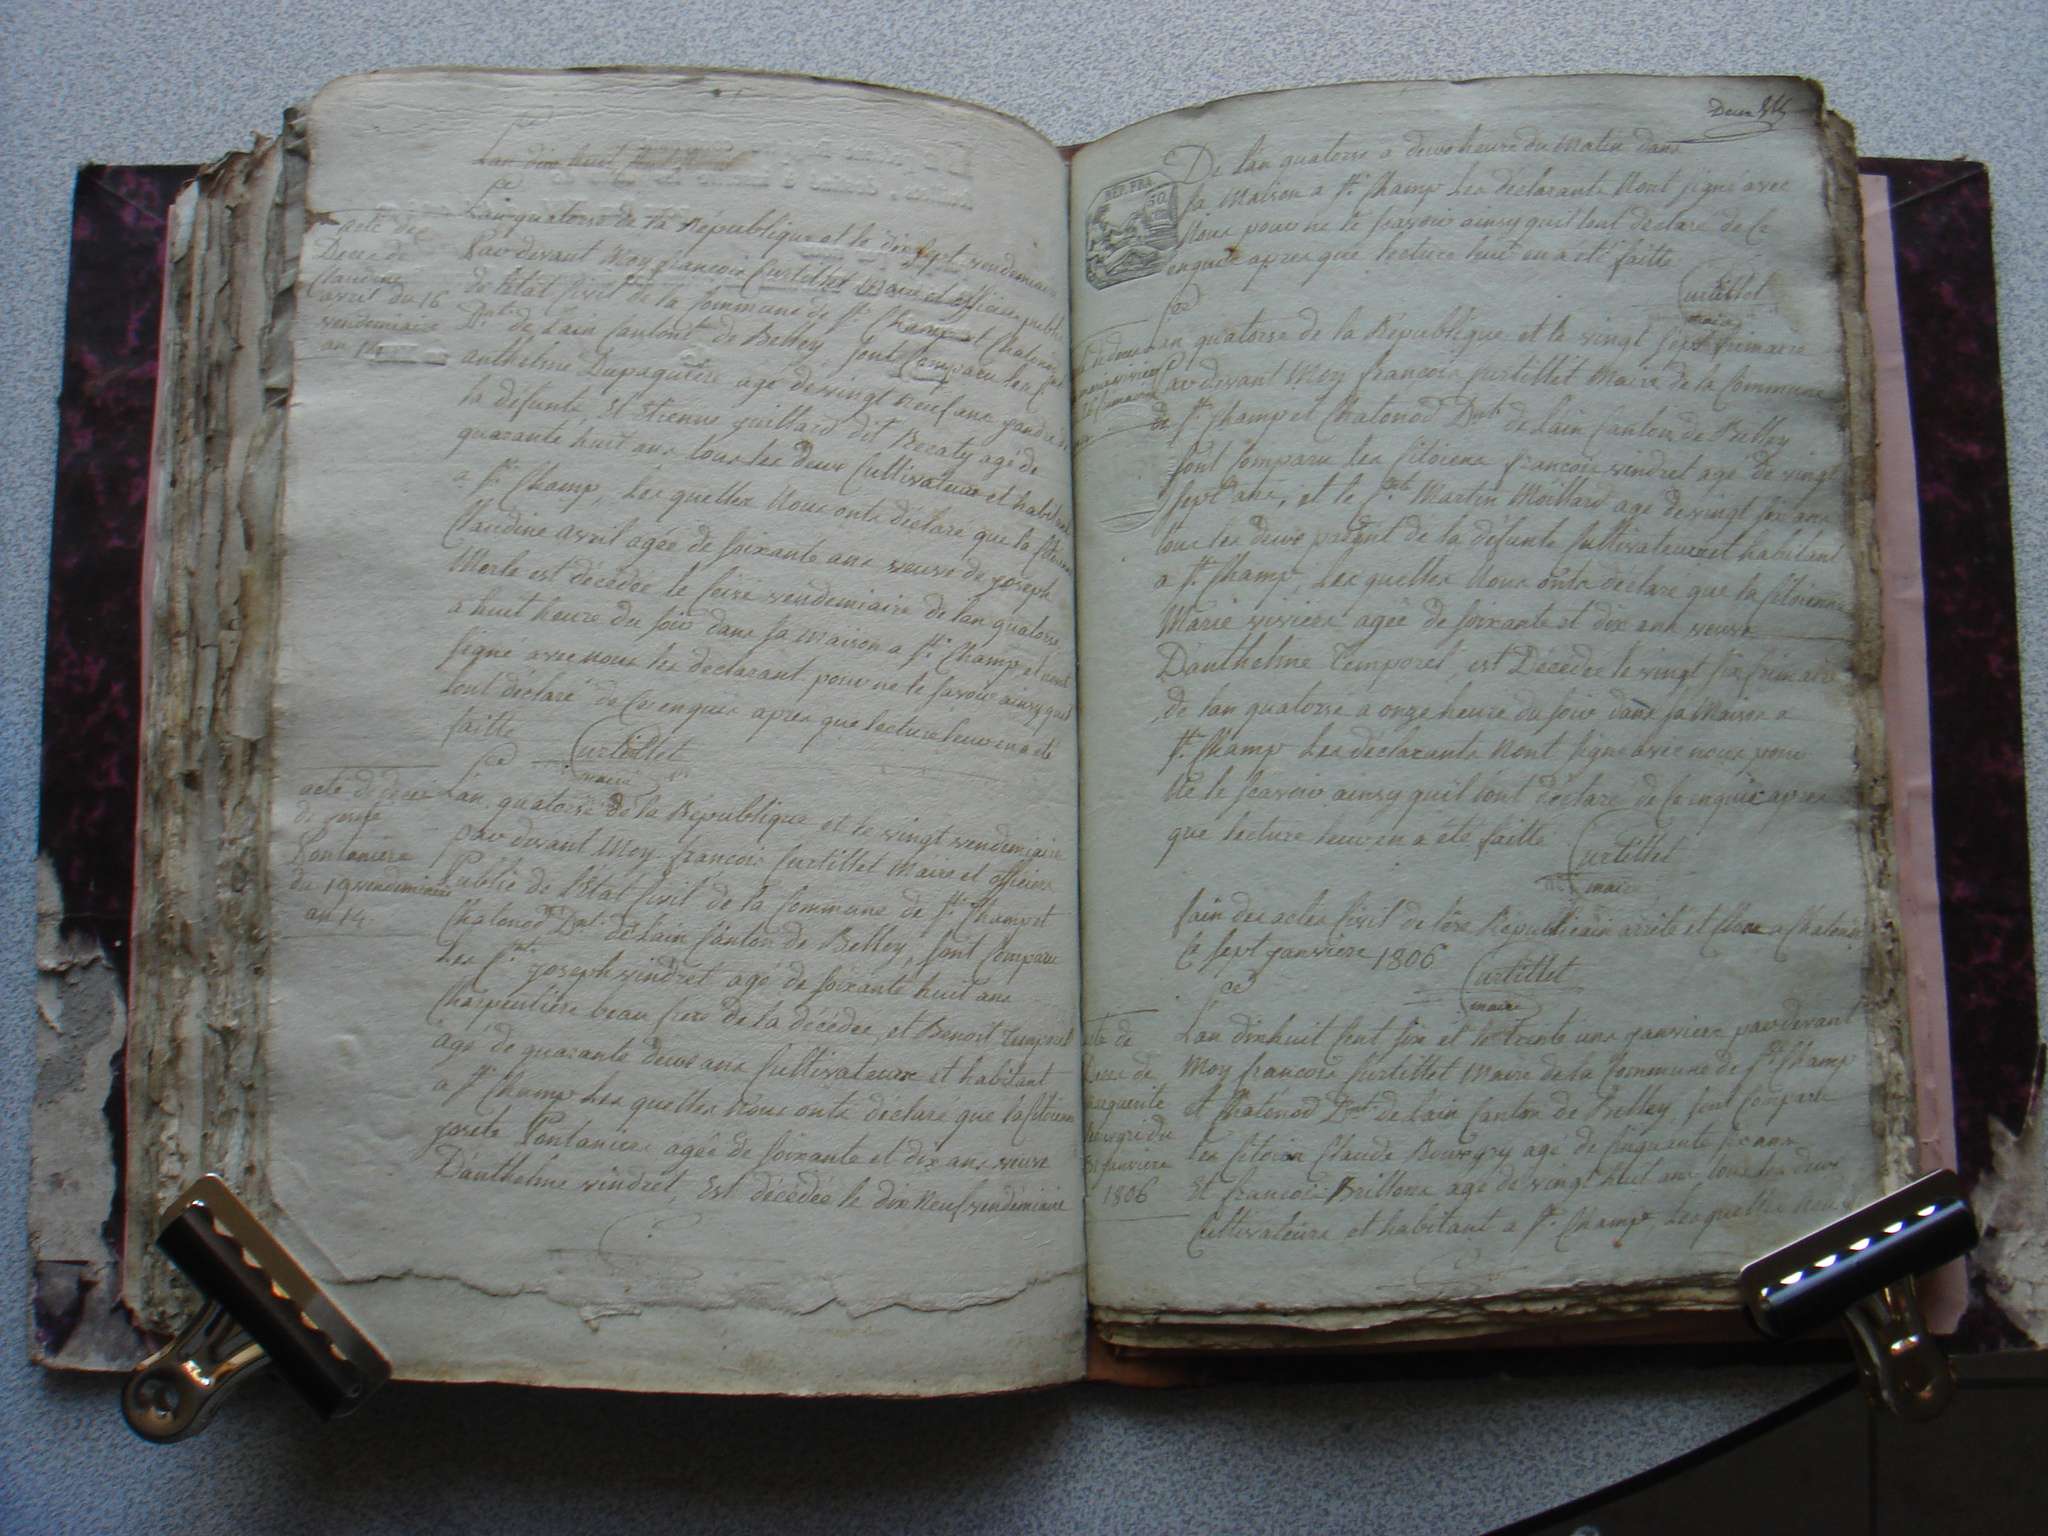 Lan dix huit
Lan quatorse de la République et le dix sept vendemiaire
Pardevant Moy francois Curtillet Maire et officier public
de l'Etat Civil de la Commune de St. Champ et Chatonod
Dnt. de Lain Canton de Belley, sont Comparu les Cns.
anthelme Dupaquiere agé de vingt neuf ans gendre de
la défunte et Etienne guillard dit Becaty agé de
quarante huit ans tous les deux Cultivateurs et habitant
a St. Champ, Les quelles Nous onts déclaré que la Citoienne
Claudine avril agée de soixante ans veuve de joseph
Merle est décédée le seise vendemiaire de lan quatorse
a huit heure du soir dans sa Maison a St. Champ, et n'ont
signé avec nous les declarant pour ne le savoir ainsy quil
lont déclaré de Ce enquis apres que lecture leur en a été
faitte Curtillet
maire
acte de
Deces de
Claudine
avril du 16
vendemiaire
an 14
Lan quatorse de la République et le vingt vendemiaire
par devant Moy francois Curtillet Maire et officier
Public de l'Etat Civil de la Commune de St. Champ et
Chatonod Dnt. de Lain Canton de Belley, sont Comparu
Les Cnt. joseph vindret agé de soixante huit ans
Charpentiére beau frere de la décédée, et Benoit Temporel
agé de quarante deux ans Cultivateurs et habitant
a St. Champ Les quelles Nous onts déclaré que la Citoienne
josete Pontaniere agée de soixante et dix ans veuve
D'anthelme vindret, Est décédée le dix neuf vendémiaire
acte de deces
de josete
Pontaniere
du 19 vendemiaire
an 14.
Deux
REP. FRA.
50
De l'an quatorse a deux heure du Matin dans
sa Maison a St. Champ Les déclarants Nont signé avec
Nous pour ne le scavoir ainsy quil lont déclaré de Ce
enquis apres que lecture leur en a été faitte
Curtillet
maire
an quatorse de la République et le vingt sept frimaire
pardevant Moy francois Curtillet Maire de la Commune
de St. Champ et Chatonod Dnt. de Lain Canton de Belley
sont Comparu les Citoiens francois vindret agé de vingt
sept ans, et le Cnt. Martin Moillard agé de vingt six ans
tous les deux parent de la défunte Cultivateurs et habitant
a St. Champ, Les quelles Nous onts déclaré que la Citoienne
Marie viviere agée de soixante et dix ans veuve
D'anthelme Temporel, est Décédée le vingt six frimaire
de lan quatorse a onze heure du soir dans sa Maison a
St. Champ Les déclarants Nont signé avec nous pour
Ne le scavoir ainsy quil lont déclaré de Ce enquis apres
que lecture leur en a été faitte Curtillet
maire
fain des actes Civil de l'ére Républicain arrété et Clos a Chatonod
Ce sept janviere 1806
Curtillet
maire
Lan dixhuit Cent six et le trente une janviere pardevant
Moy francois Curtillet Maire de la Commune de St. Champ
et Chatonod Dnt. de Lain Canton de Belley, sont Comparu
Les Citoien Claude Bouvgry agé de Cinquante six ans
Et francois Brillona agé de vingt huit ans tous les deux
Cultivateurs et habitant a St. Champ Les quelles nous
acte de
deces de
marguerite
31 janviere
1806